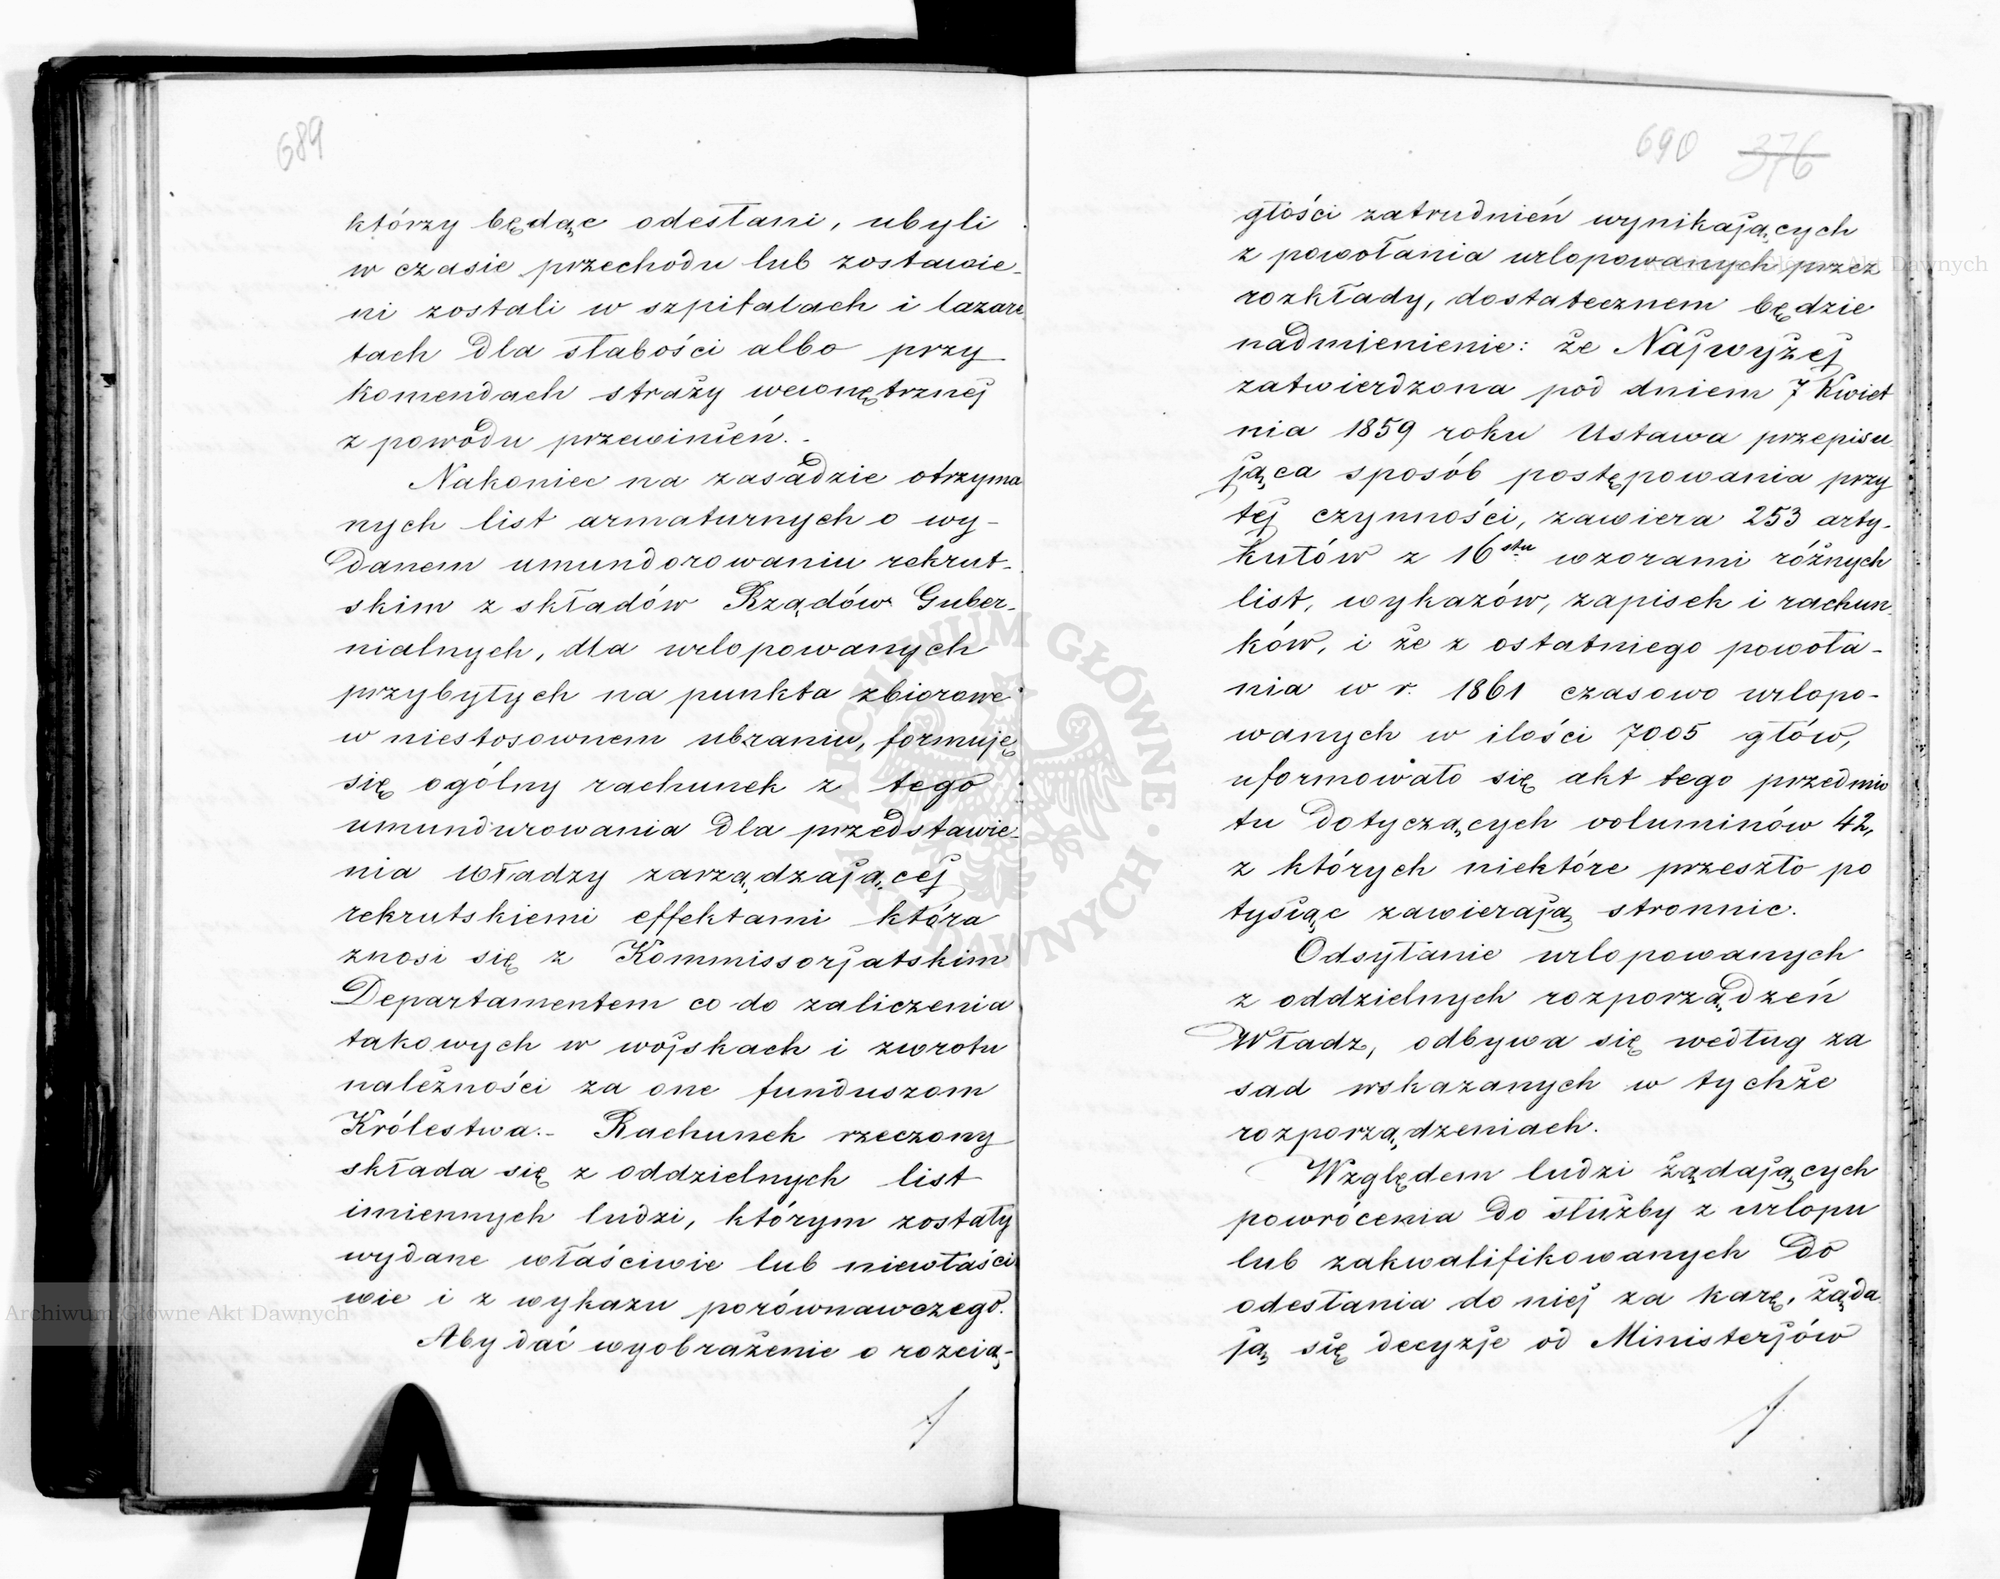 689
którzy będąc odesłani, ubyli
w czasie przechodu lub zostawie-
ni zostali w szpitalach i lazare
tach dla słabości albo przy
komendach straży wewnętrznej
z powodu przewinień.-
Nakoniec na zasadzie otrzyma
nych list armaturnych o wy-
danem umundorowaniu rekrut-
skim z składów Rządów Guber-
nialnych, dla urlopowanych
przybyłych na punkta zbiorowe
w niestosownem ubraniu, formuje
się ogólny rachunek z tego
umundurowania dla przedstawie-
nia Władzy zarządzającej
rekrutskiemi effektami która
znosi się z Kommissorjatskim
Departamentem co do zaliczenia
takowych w wojskach i zwrotu
należności za one funduszom
Królestwa.- Rachunek rzeczony
składa się z oddzielnych list
imiennych ludzi, którym zostały
wydane właściwie lub niewłaści
wie i z wykazu porównawczego.
Aby dać wyobrażenie o rozcią-
690 376
głości zatrudnień wynikających
z powołania urlopowanych przez
rozkłady, dostatecznem będzie
nadmienienie: że Najwyżej
zatwierdzona pod dniem 7 Kwiet
nia 1859 roku Ustawa przepisu
jąca sposób postępowania przy
tej czynności, zawiera 253 arty-
kułów z 16stu wzorami różnych
list, wykazów, zapisek i rachun
ków, i że z ostatniego powoła-
nia w r. 1861 czasowo urlopo-
wanych w ilości 7005 głów,
uformowało się akt tego przedmio
tu dotyczących voluminów 42,
z których niektóre przeszło po
tysiąc zawierają stronnic.
Odsyłanie urlopowanych
z oddzielnych rozporządzeń
Władz, odbywa się według za
sad wskazanych w tychże
rozporządzeniach.
Względem ludzi żądających
powrócenia do służby z urlopu
lub zakwalifikowanych do
odesłania do niej za karę, żąda
ją się decyzje od Ministerjów
Archiwum Główne Akt Dawnych
Archiwum Główne Akt Dawnych
ARCHIWUM GŁÓWNE AKT DAWNYCH